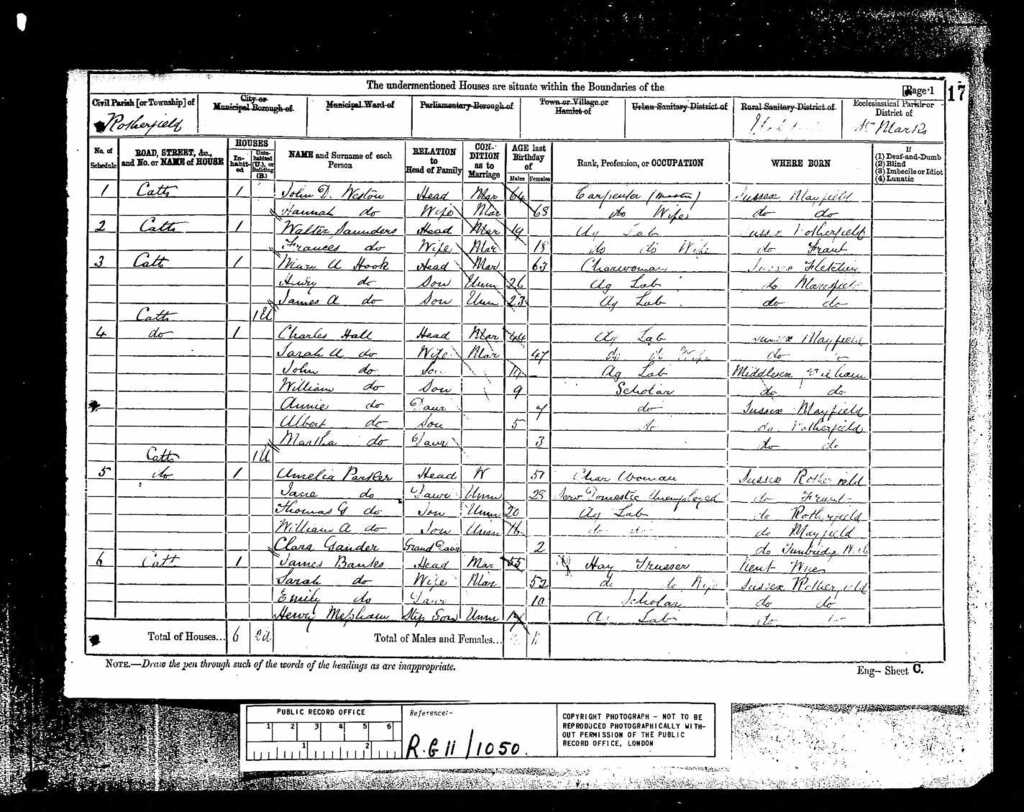 The undermentioned Houses are situate within the Boundaries of the
Page 1
17
Civil Parish [or Township] of
City or Municipal Borough of
Municipal Ward of
Parliamentary Borough of
Town or Village or Hamlet of
Urban Sanitary District of
Rural Sanitary District of
Ecclesiastical Parish or District of
Rotherfield
St Marks
No. of Schedule
ROAD, STREET, &c., and No. or NAME of HOUSE
HOUSES
Inhabited
Uninhabited (U.), or Building (B.)
NAME and Surname of each Person
RELATION to Head of Family
CONDITION as to Marriage
AGE last Birthday of
Males
Females
Rank, Profession, or OCCUPATION
WHERE BORN
If
(1) Deaf-and-Dumb
(2) Blind
(3) Imbecile or Idiot
(4) Lunatic
1 Catts 1 John D. Weston Head Mar 64 Carpenter (master) Sussex Mayfield
Hannah do Wife Mar 68 do Wife do do
2 Catts 1 Walter Saunders Head Mar 19 Ag Lab Rotherfield
Frances do Wife Mar 18 do do Wife do Frant
3 Catts 1 Mary A Hook Head Mar 63 Charwoman Sussex Fletching
Henry do Son Unm 26 Ag Lab do Maresfield
James A do Son Unm 23 Ag Lab do do
Catts 1U
4 do 1 Charles Hall Head Mar 44 Ag Lab Sussex Mayfield
Sarah A do Wife Mar 47 do do Wife do
John do Son Ag Lab Middlesex
William do Son 9 Scholar do do
Annie do Daur 7 do Sussex Mayfield
Albert do Son 5 do do Rotherfield
Martha do Daur 3 do do
Catts 1U
5 do 1 Amelia Parker Head W 51 Char Woman Sussex Rotherfield
Jane do Daur Unm 28 Domestic Unemployed do Frant
Thomas G do Son Unm 20 Ag Lab do Rotherfield
William A do Son Unm 16 do do do Mayfield
Clara Gander Grand Daur 2 do Tunbridge Wells
6 Catts 1 James Banks Head Mar 55 Hay Trusser Kent
Sarah do Wife Mar 52 do do Wife Sussex Rotherfield
Emily do Daur 10 Scholar do do
Henry Mepham Step Son Unm Ag Lab do do
Total of Houses... 6 2U
Total of Males and Females...
NOTE.—Draw the pen through such of the words of the headings as are inappropriate.
Eng— Sheet C.
PUBLIC RECORD OFFICE
1 2 3 4 5 6
1 2
Reference:-
R.G 11/1050.
COPYRIGHT PHOTOGRAPH - NOT TO BE
REPRODUCED PHOTOGRAPHICALLY WITH-
OUT PERMISSION OF THE PUBLIC
RECORD OFFICE, LONDON